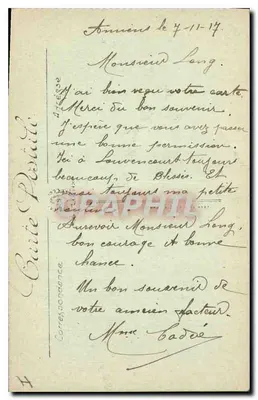 Amiens le 7-11-17
Monsieur Long.
J'ai bien reçu votre carte
Merci du bon souvenir.
J'espère que vous avez passer
une bonne permission.
Ici à Louvencourt toujours
beaucoup de Blessés. Et
moi toujours ma petite
Aurevoir Monsieur Long,
bon courage et bonne
chance.
Un bon souvenir de
votre ancien facteur.
Mme
Carte Postale
Correspondance
Adresse
CPAPHIL